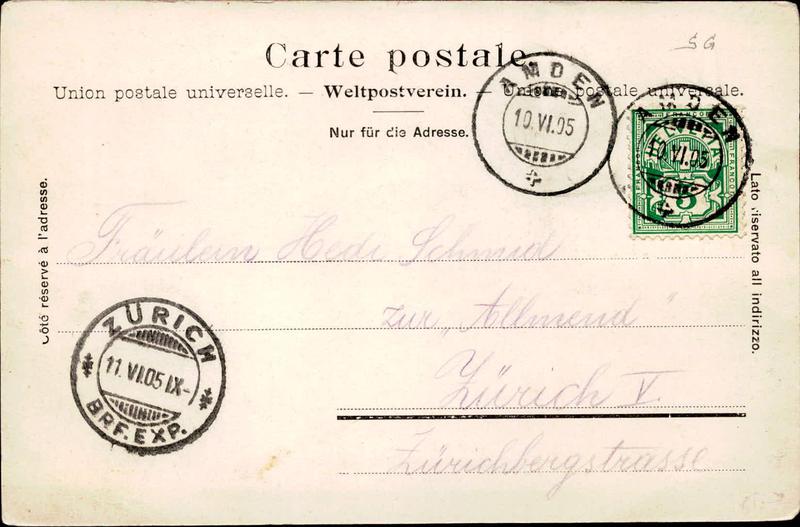 SG
Carte postale.
Union postale universelle. — Weltpostverein. — Unione postale universale.
Nur für die Adresse.
AMDEN
10.VI.05
AMDEN
10.VI.05
HELVETIA
FRANCO
5
Côté réservé à l'adresse.
Lato riservato all indirizzo.
Fräulein Hedi Schmid
zur „Allmend"
Zürich V.
Zürichbergstrasse
ZÜRICH
11.VI.05 IX-
BRF. EXP.